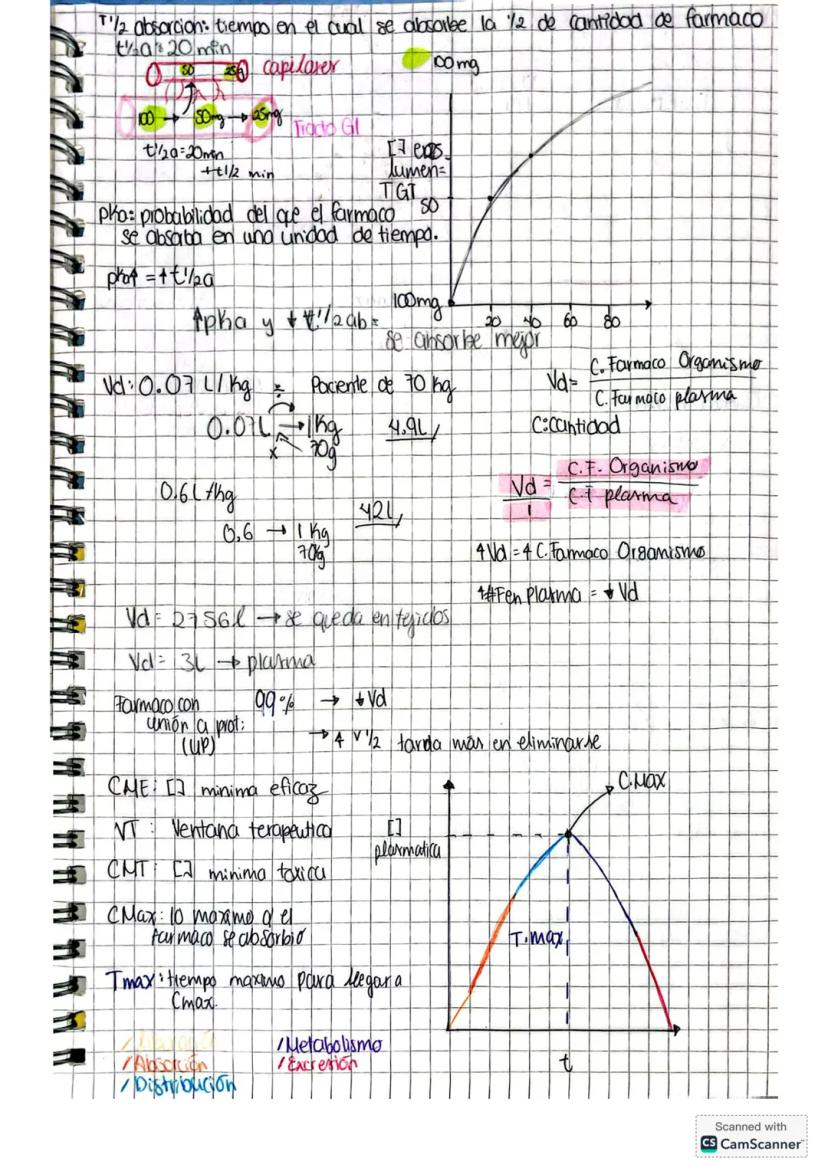 T'/2 absorcion: tiempo en el cual se absorbe la 1/2 de cantidad de farmaco
t'/2a = 20 min
100mg
50 25 capilares
100 → 50mg → 25mg Tracto GI
t'/2a=20min
+t1/2 min
[ ]
lumen=
TGI
50
100mg
20 40 60 80
pka= probabilidad del que el farmaco
se absorba en una unidad de tiempo.
pka↑ = ↑t'/2a
↑pka y ↓t'/2ab =
se absorbe mejor
Vd: 0.07 L/Kg Paciente de 70 kg
0.07L → 1Kg 4.9L
x 70g
Vd= C. Farmaco Organismo
C. Farmaco plasma
C=cantidad
0.6L/kg 42L
0,6 → 1 Kg
70kg
Vd = C.F. Organismo
1 C.F plasma
↑Vd = ↑ C. Farmaco Organismo
↑#F en Plasma = ↓ Vd
Vd = 2756l → se queda en tejidos
Vd = 3L → plasma
Farmaco con 99% → ↓Vd
unión a prot:
(UP) → ↑ V 1/2 tarda más en eliminarse
CME: [] minima eficaz
VT : Ventana terapeutica
CMT: [] minima toxica
CMax: lo maximo q el
farmaco se absorbió
Tmax: tiempo maximo para llegar a
Cmax.
C.Max
[ ]
plasmatica
T.max
t
/Absorción
/Distribución
/Metabolismo
/Excresión
Scanned with
CS CamScanner